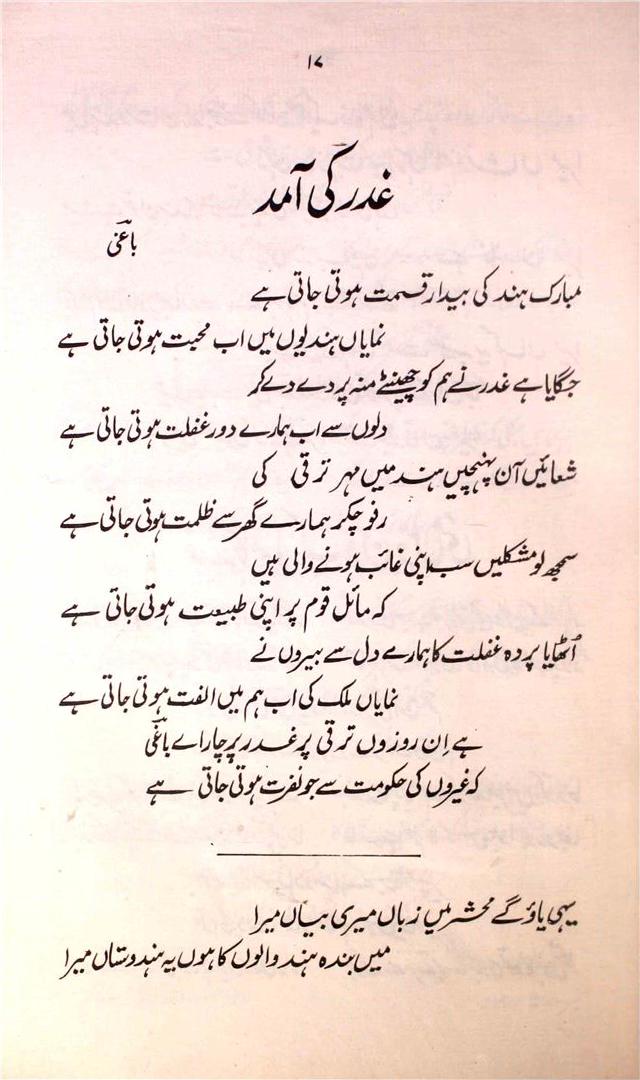 ۱۷
غدر کی آمد
باغیؔ
مبارک ہند کی بیدار قسمت ہوتی جاتی ہے
نمایاں ہندیوں میں اب محبت ہوتی جاتی ہے
جگایا ہے غدر نے ہم کو چھینٹے منہ پر دے دے کر
دلوں سے اب ہمارے دور غفلت ہوتی جاتی ہے
شعائیں آن پہنچیں ہند میں مہر ترقی کی
رفو چکر ہمارے گھر سے ظلمت ہوتی جاتی ہے
سمجھ لو مشکلیں سب اپنی غائب ہونے والی ہیں
کہ مائل قوم پر اپنی طبیعت ہوتی جاتی ہے
اُٹھایا پردہ غفلت کا ہمارے دل سے بیروں نے
نمایاں ملک کی اب ہم میں الفت ہوتی جاتی ہے
ہے اِن روزوں ترقی پر غدر پرچار اے باغیؔ
کہ غیروں کی حکومت سے جو نفرت ہوتی جاتی ہے
یہی پاؤ گے محشر میں زباں میری بیاں میرا
میں بندہ ہند والوں کا ہوں یہ ہندوستاں میرا